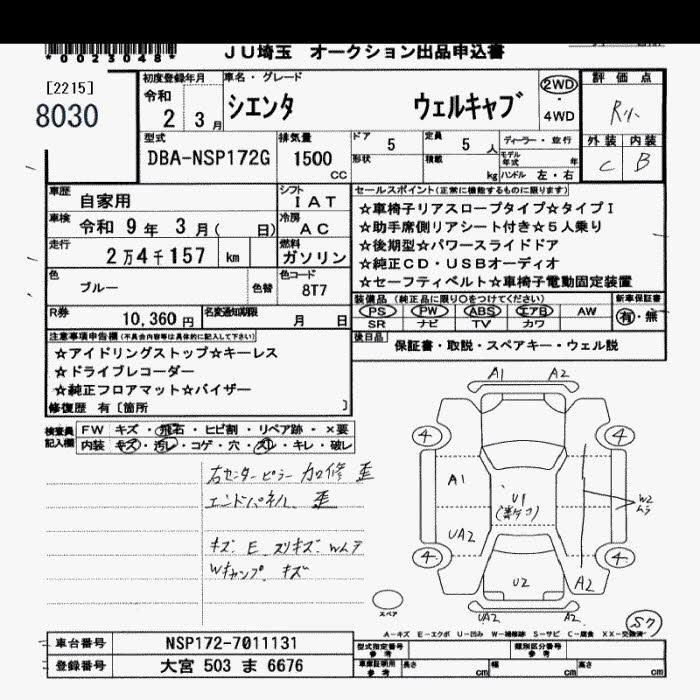 *0023048*
JU埼玉 オークション出品申込書
[2215]
8030
初度登録年月
令和
2 3月
車名・グレード
シエンタ ウェルキャブ
2WD
・
4WD
評価点
R小
外装 内装
C B
型式
DBA-NSP172G
排気量
1500
CC
ドア 5
形状
定員 5人
積載 kg
ディーラー・並行
モデル年式 年
ハンドル 左・右
車歴 自家用
シフト
IAT
車検 令和 9年 3月( 日)
冷房
AC
走行 2万4千157 km
燃料
ガソリン
色
ブルー
色替
色コード
8T7
R券 10,360円
名変通知期限
月 日
セールスポイント(正常に機能するものに限ります)
☆車椅子リアスロープタイプ☆タイプI
☆助手席側リアシート付き☆5人乗り
☆後期型☆パワースライドドア
☆純正CD・USBオーディオ
☆セーフティベルト☆車椅子電動固定装置
装備品(純正品に限り○をつけてください)
新車保証書
PS PW ABS エアB AW
SR ナビ TV カワ
有・無
後日品 保証書・取説・スペアキー・ウェル説
注意事項申告欄(不具合内容等は具体的に記入して下さい)
☆アイドリングストップ☆キーレス
☆ドライブレコーダー
☆純正フロアマット☆バイザー
修復歴 有〔箇所 〕
検査員
記入欄
FW キズ・飛石・ヒビ割・リペア跡・×要
内装 キズ・汚レ・コゲ・穴・スレ・キレ・破レ
右センターピラー 加修 歪
エンドパネル 歪
キズ E スリキズ Wムラ
Wキャンプ キズ
A1 A2
4 4
A1
U1
W2
ムラ
UA2
4 4
U2
A2
UA2 A2
スペア
S7
A-キズ E-エクボ U-凹み W-補修跡 S-サビ C-腐食 XX-交換済
車台番号 NSP172-7011131
登録番号 大宮 503 ま 6676
型式指定番号
参考
類別区分番号
参考
車庫証明用
参考
長さ cm
幅 cm
高さ cm